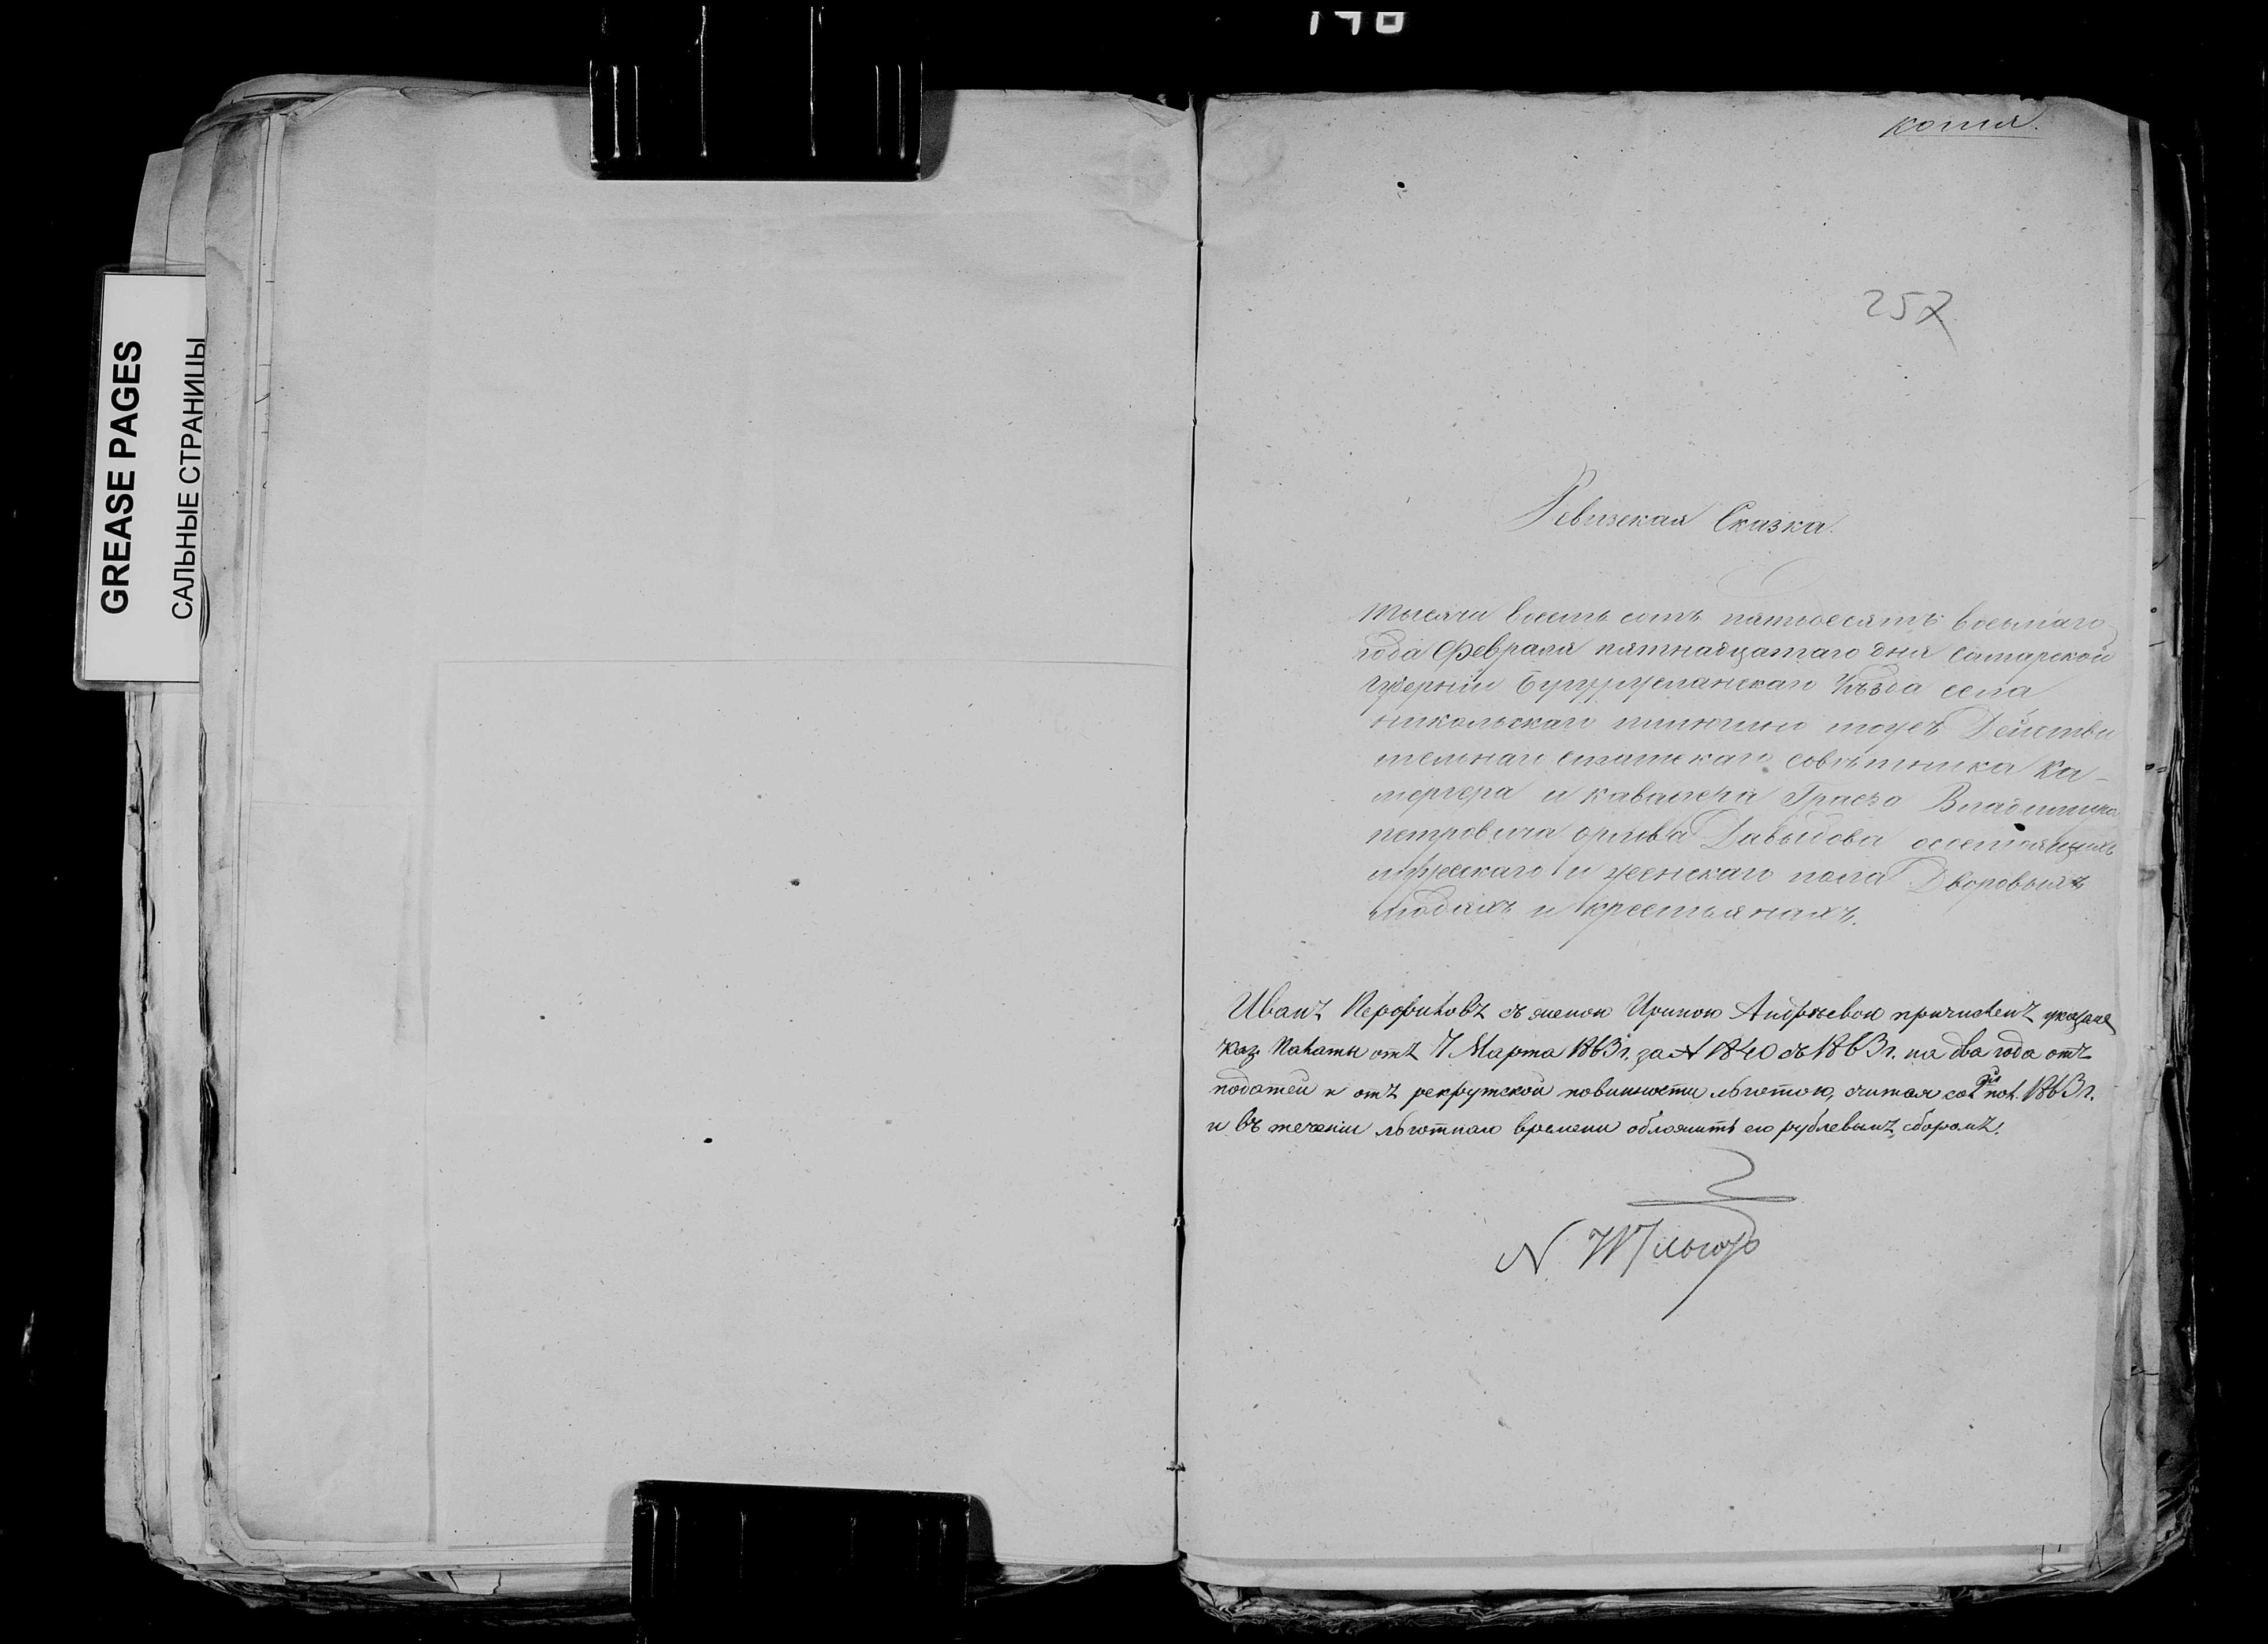 GREASE PAGES
САЛЬНЫЕ СТРАНИЦЫ
копия.
257
Ревизская Сказка.
тысяча восемь сотъ пятьдесятъ восьмаго
года Февраля пятнадцатаго дня Самарской
губернии Бугурусланскаго Уѣзда села
никольскаго тожъ Действи
тельнаго статскаго совѣтника Ка-
мергера и кавалера Графа Владимира
петровича орлова Давыдова о состоящихъ
мужескаго и женскаго пола Дворовыхъ
людяхъ и крестьянахъ.
Иванъ съ женою Ириною Андрѣевою причисленъ указомъ
Каз. Палаты отъ 7 Марта 1863 г. за № 1840 съ 1863 г. на два года отъ
податей и отъ рекрутской повинности льготою, считая со 2й пол. 1863 г.
и въ течении льготнаго времени обложить его рублевымъ сборомъ.